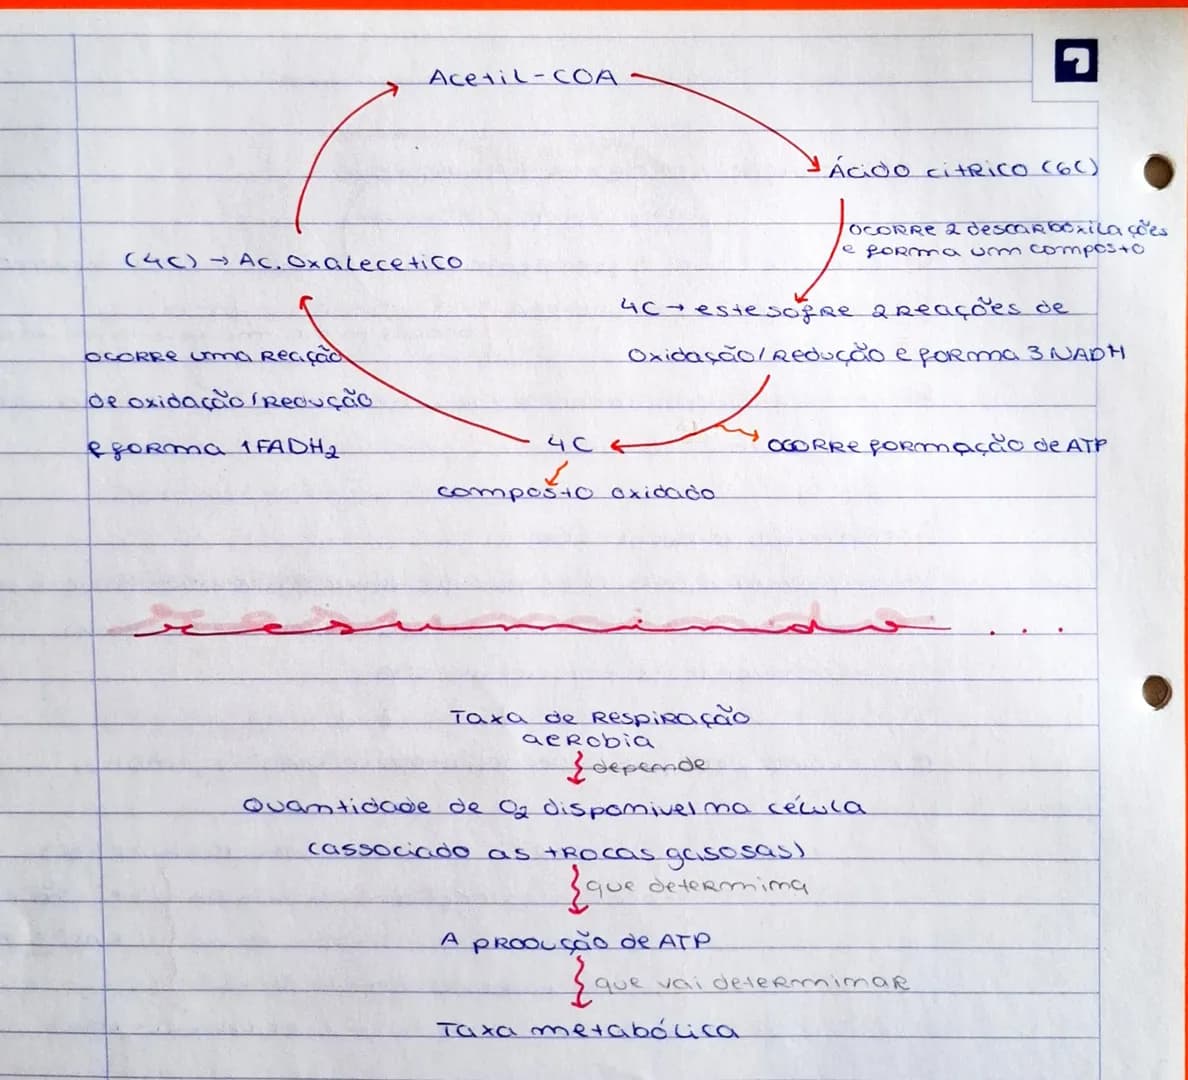 Acetil-COA
Ácido citrico (6C)
ocorre 2 descarboxilações
e forma um composto
(4C) → Ac. Oxalecetico
4C → este sofre 2 reações de
Oxidação/Redução e forma 3 NADH
ocorre uma Reação
de oxidação/Redução
e forma 1 FADH2
4C
ocorre formação de ATP
composto oxidado
resumindo ...
Taxa de Respiração
aerobia
depende
Quantidade de O2 disponivel na célula
(associado as trocas gasosas)
que determina
A produção de ATP
que vai determinar
Taxa metabólica